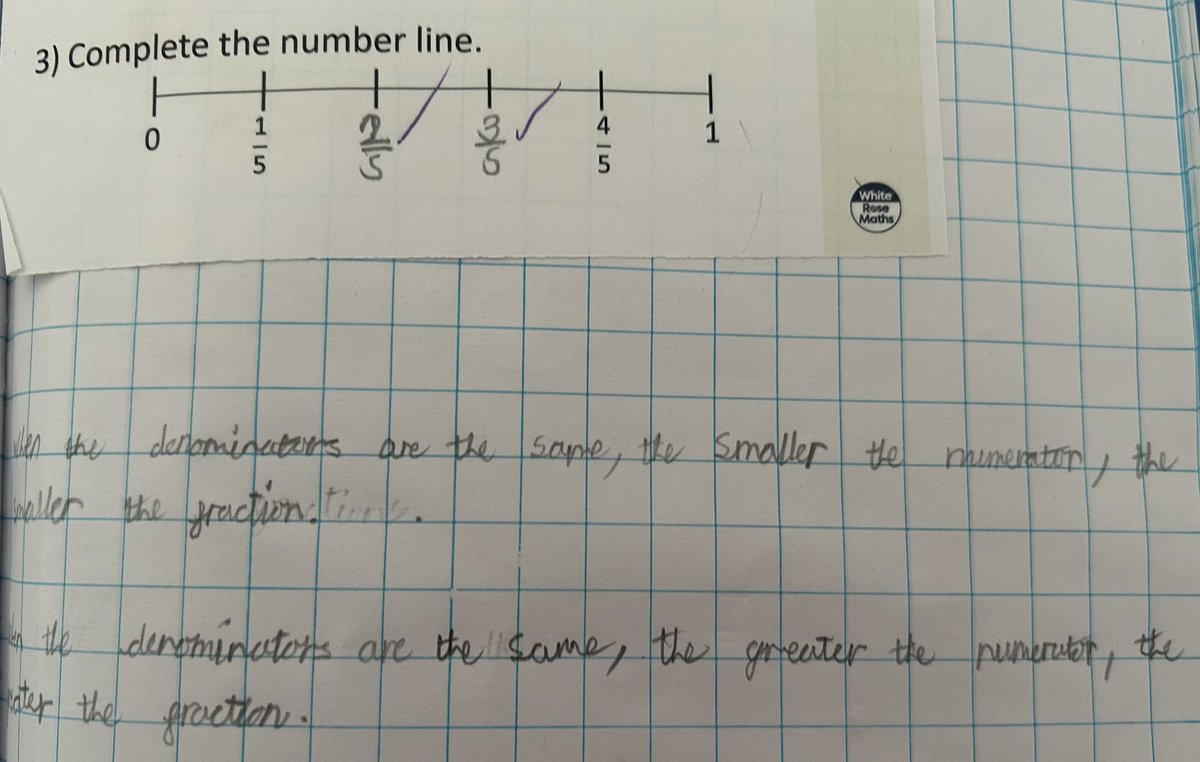 3) Complete the number line.
0 1/5 2/5 3/5 4/5 1
White
Rose
Maths
the denominators are the same, the smaller the numerator, the
the fraction.
the denominators are the same, the greater the numerator, the
the fraction.